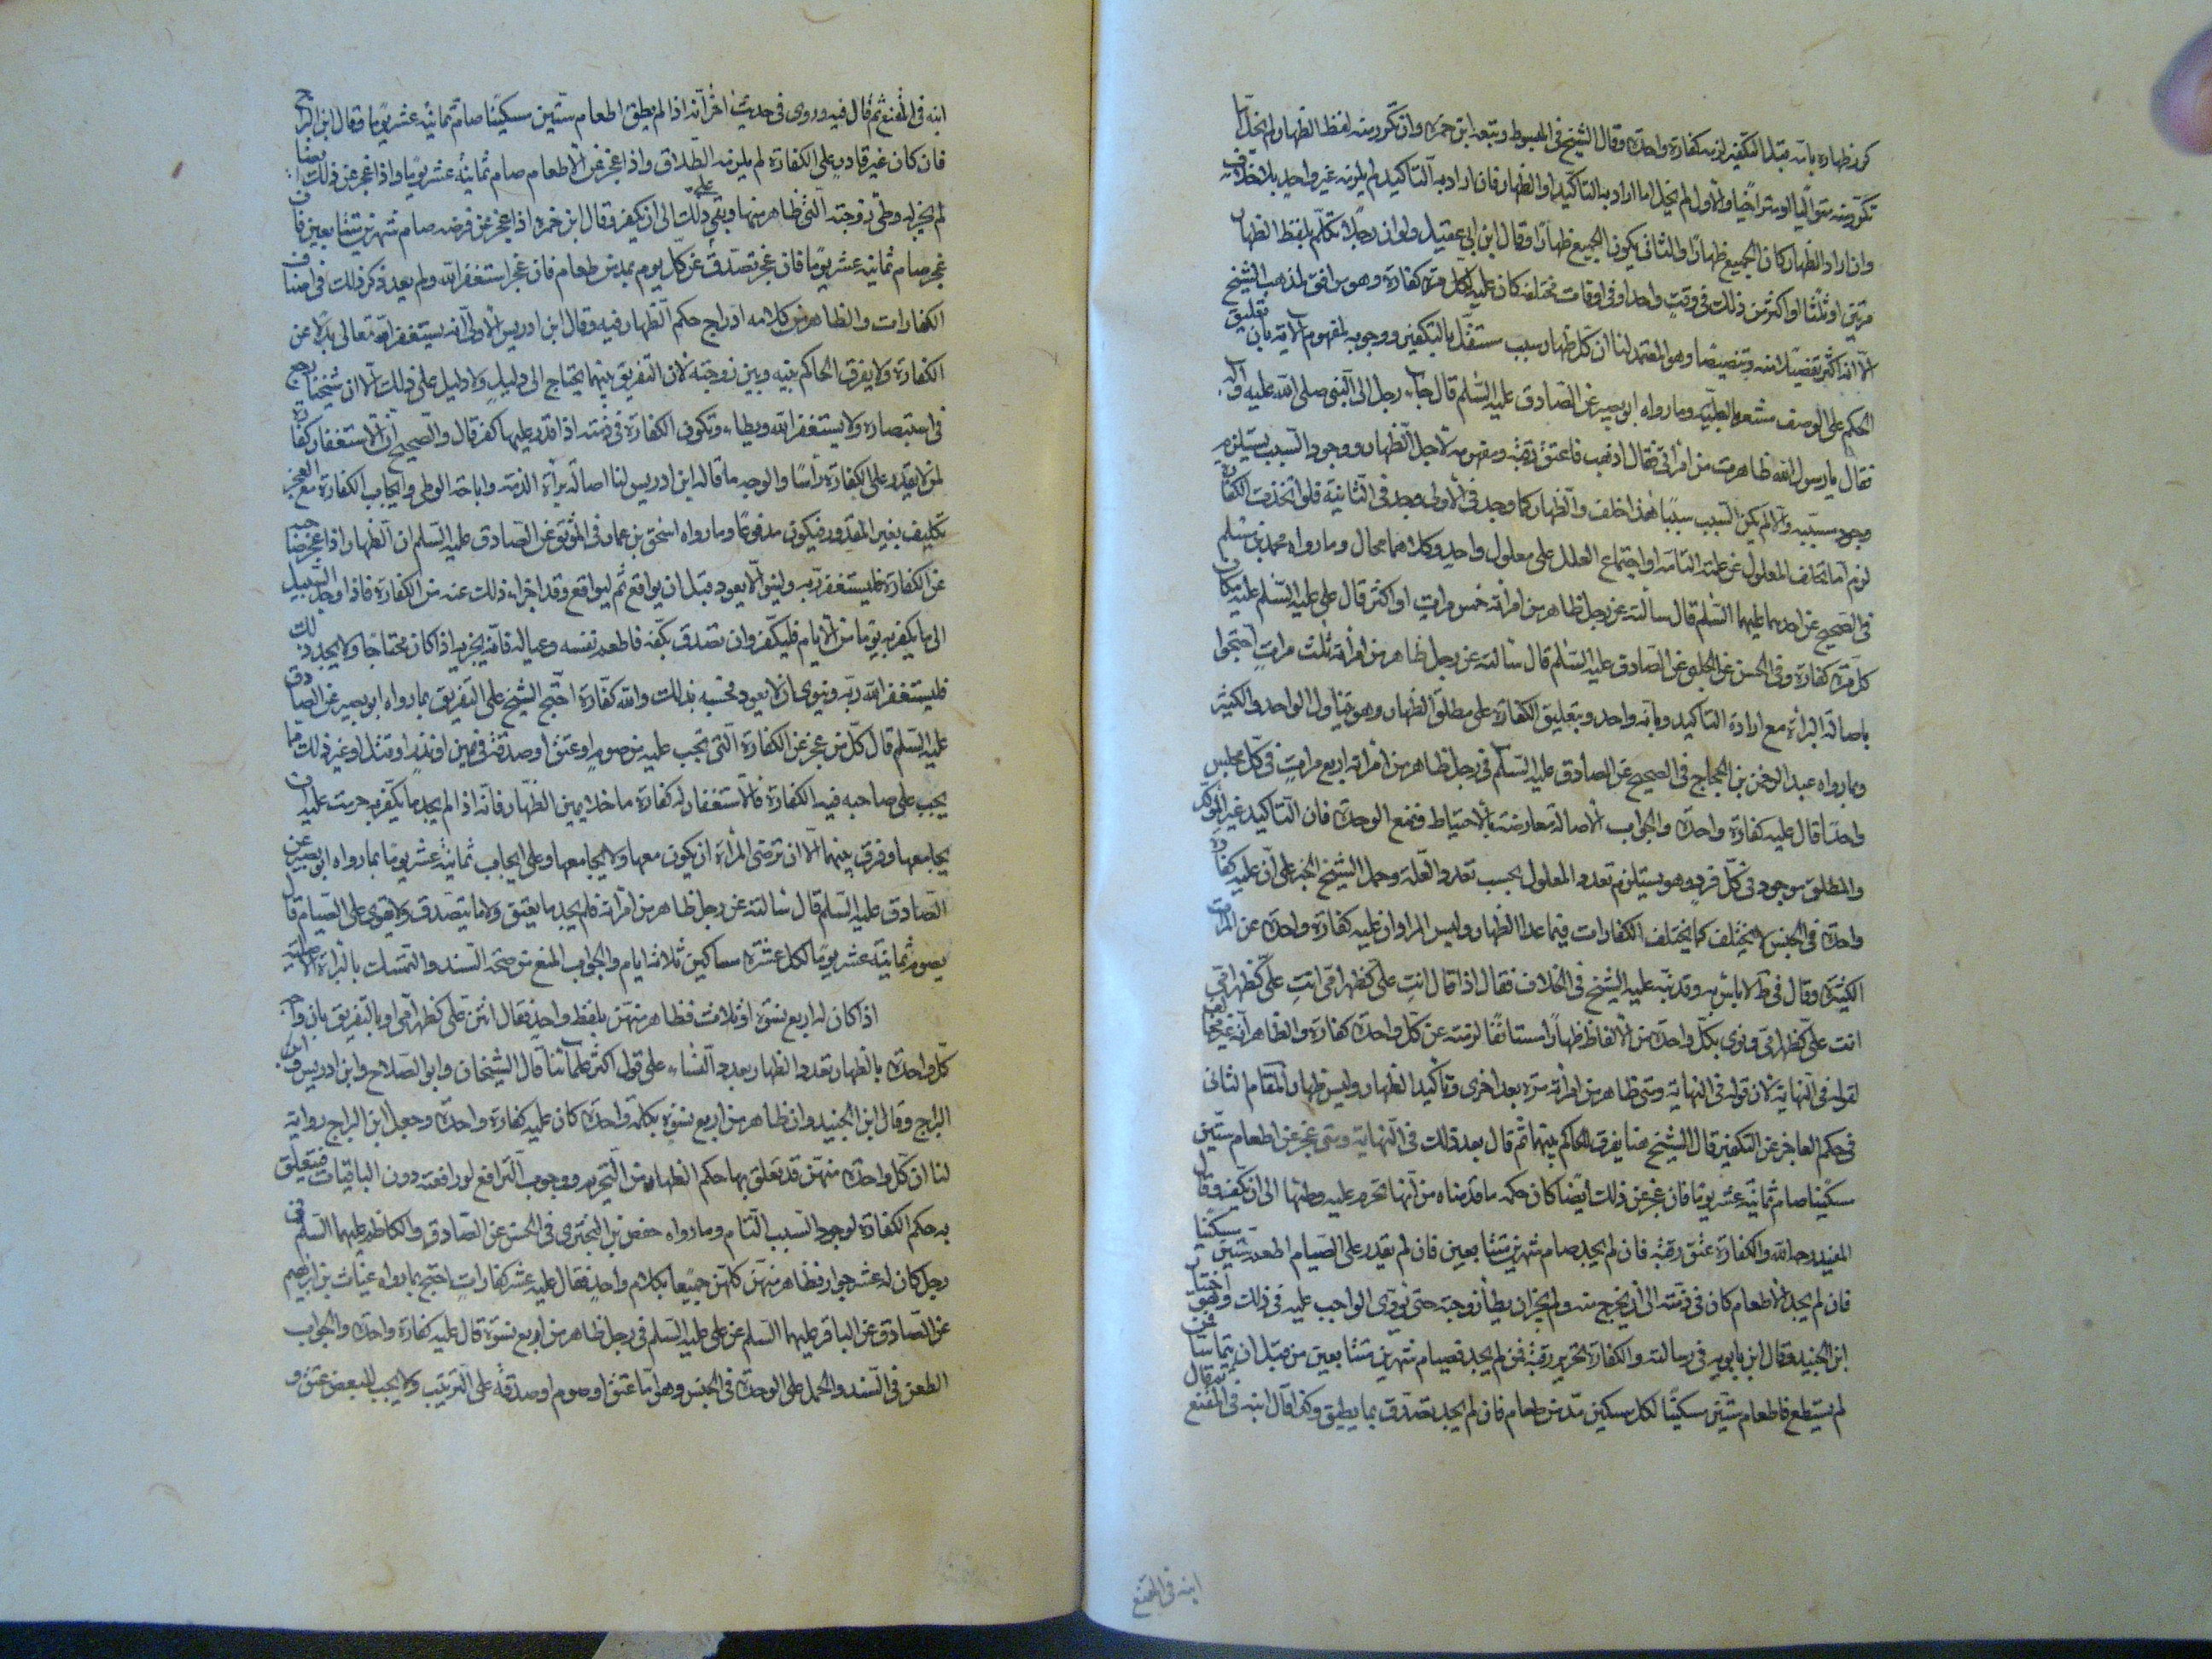 كرر ظهاره بانه قبل التكفير لزمه كفارة واحدة وقال الشيخ في المبسوط وتبعه ابن حمزة وان تكرر منه لفظ الظهار لم يخل اما
تكرر منه متواليا او متراخيا والاول لم يخل اما اراد به التاكيد او الظهار فان اراد به التاكيد لم يلزمه غير واحد بلا خلاف
وان اراد الظهار كان الجميع ظهارا والثاني يكون الجميع ظهارا وقال ابن ابي عقيل ولو ان رجلا تكلم بلفظ الظهار
مرتين او ثلثا او اكثر من ذلك في وقت واحد او في اوقات مختلفة كان عليه لكل مرة كفارة وهو موافق لمذهب الشيخ
الا انه اكثر تفصيلا منه وتنصيصا وهو المعتمد لنا ان كل ظهار سبب مستقل بالتكفير ووجوبه لمفهوم الاية بان تعليق
الحكم على الوصف مشعر بالعلية وما رواه ابو بصير عن الصادق عليه السلم قال جاء رجل الى النبي صلى الله عليه واله
فقال يا رسول الله ظاهرت من امراتي فقال اذهب فاعتق رقبة ومفهومه لاجل الظهار ووجود السبب يستلزم
وجود مسببه والا لم يكن السبب سببا هذا خلف والظهار كما وجد في الاولى وجد في الثانية فلو اتحدت الكفارة
لزم اما تخلف المعلول عن علته التامة او اجتماع العلل على معلول واحد وكلاهما محال وما رواه محمد بن مسلم
في الصحيح عن احدهما عليهما السلم قال سألته عن رجل ظاهر من امراته خمس مرات او اكثر قال علي عليه السلم عليه مكان
كل مرة كفارة وفي الحسن عن الحلبي عن الصادق عليه السلم قال سألته عن رجل ظاهر من امرأته ثلث مرات احتجوا
باصالة البراة مع ارادة التاكيد وبانه واحد وبتعليق الكفارة على مطلق الظهار وهو يتناول الواحد والكثير
وبما رواه عبد الرحمن بن الحجاج في الصحيح عن الصادق عليه السلم في رجل ظاهر من امراته اربع مرات في كل مجلس
واحدة قال عليه كفارة واحدة والجواب الاصالة معارضة بالاحتياط ونمنع الوحدة فان التاكيد غير المؤكد
والمطلق موجود في كل فرد وهو يستلزم تعدد المعلول بحسب تعدد العلة وحمل الشيخ الخبر على ان عليه كفارة
واحدة في الجنس لا يختلف كما يختلف الكفارات فيما عدا الظهار وليس المراد ان عليه كفارة واحدة عن المرات
الكثيرة وقال في ط لا باس به وقد نبه عليه الشيخ في الخلاف فقال اذا قال انت علي كظهر امي انت علي كظهر امي
انت علي كظهر امي ونوى بكل واحدة من الالفاظ ظهارا مستانفا لزمته عن كل واحدة كفارة والظاهر انه غير مخالف
لقوله في النهاية لان قوله في النهاية ومتى ظاهر من امرأته مرة بعد اخرى وتأكيد الظهار وليس ظهارا المقام الثاني
في حكم العاجز عن التكفير قال الشيخ هنا يفرق الحاكم بينهما ثم قال بعد ذلك في النهاية ومتى عجز عن اطعام ستين
مسكينا صام ثمانية عشر يوما فان عجز عن ذلك ايضا كان حكمه ما قدمناه من انها تحرم عليه وطئها الى ان يكفر وقال
المفيد رحمه الله والكفارة عتق رقبة فان لم يجد صام شهرين متتابعين فان لم يقدر على الصيام اطعم ستين مسكينا
فان لم يجد الاطعام كان في ذمته الى ان يخرج منه ولم يجز ان يطأ زوجته حتى يؤدي الواجب عليه في ذلك وهو اختيار
ابن الجنيد وقال ابن بابويه في رسالته والكفارة تحرير رقبة فمن لم يجد فصيام شهرين متتابعين من قبل ان يتماسا فمن
لم يستطع فاطعام ستين مسكينا لكل مسكين مد من طعام فان لم يجد تصدق بما يطيق وكذا قال ابنه في المقنع
ابنه في المقنع
ابنه في المقنع ثم قال فيه وروي في حديث اخر انه اذا لم يطق اطعام ستين مسكينا صام ثمانية عشر يوما وقال ابن البراج
فان كان غير قادر على الكفارة لم يلزمه الطلاق واذا عجز عن الاطعام صام ثمانية عشر يوما واذا عجز عن ذلك ايضا
لم يجز له وطي زوجته التي ظاهر منها وبقي على ذلك الى ان يكفر وقال ابن حمزة اذا عجز عن فرضه صام شهرين متتابعين فان
عجز صام ثمانية عشر يوما فان عجز تصدق عن كل يوم بمدين طعام فان عجز استغفر الله ولم يعد ذكر ذلك في اصناف
الكفارات والظاهر من كلامه ادراج حكم الظهار فيه وقال ابن ادريس الاولى انه يستغفر الله تعالى بدلا عن
الكفارة ولا يفرق الحاكم بينه وبين زوجته لان التفريق بينهما يحتاج الى دليل ولا دليل على ذلك الا ان شيخنا رجع
في استبصاره ولا يستغفر الله ويطأ وتكون الكفارة في ذمته اذا قدر عليها كفر قال والصحيح ان الاستغفار كفارة
لمن لا يقدر على الكفارة رأسا والوجه ما قاله ابن ادريس لنا اصالة براءة الذمة واباحة الوطي وايجاب الكفارة مع العجز
تكليف بغير المقدور فيكون مدفوعا وما رواه اسحق بن عمار في الموثق عن الصادق عليه السلم ان الظهار اذا عجز صاحبه
عن الكفارة فليستغفر ربه ولينو الا يعود قبل ان يواقع ثم ليواقع وقد اجزأ ذلك عنه من الكفارة فاذا وجد السبيل
الى ما يكفر به يوما من الايام فليكفر وان تصدق بكفه فاطعم نفسه وعياله فانه يجزيه اذا كان محتاجا ولا يجد ذلك
فليستغفر الله ربه وينوي ان لا يعود فحسبه بذلك والله كفارة احتج الشيخ على التفريق بما رواه ابو بصير عن الصادق
عليه السلم قال كل من عجز عن الكفارة التي تجب عليه من صوم او عتق او صدقة في يمين او نذر او قتل او غير ذلك مما
يجب على صاحبه فيه الكفارة فالاستغفار له كفارة ما خلا يمين الظهار فانه اذا لم يجد ما يكفر به حرمت عليه ان
يجامعها وفرق بينهما الا ان ترضى المراة ان يكون معها ولا يجامعها وعلى ايجاب ثمانية عشر يوما بما رواه ابو بصير عن
الصادق عليه السلم قال سألته عن رجل ظاهر من امرأته فلم يجد ما يعتق ولا ما يتصدق ولا يقوى على الصيام قال
يصوم ثمانية عشر يوما لكل عشرة مساكين ثلاثة ايام والجواب المنع من صحة السند والتمسك بالبراءة الاصلية
اذا كان له اربع نسوة او ثلاث فظاهر منهن بلفظ واحد فقال انتن علي كظهر امي او بالتفريق بان واجه
كل واحدة بالظهار تعدد الظهار بعدد النساء على قول اكثر علمائنا قال الشيخان وابو الصلاح وابن ادريس وابن
البراج وقال ابن الجنيد وان ظاهر من اربع نسوة بكلمة واحدة كان عليه كفارة واحدة وجعل ابن البراج رواية
لنا ان كل واحدة منهن قد تعلق بها حكم الظهار من التحريم ووجوب الترافع لو رافعته دون الباقيات فيتعلق
به حكم الكفارة لوجود السبب التام وما رواه حفص بن البختري في الحسن عن الصادق والكاظم عليهما السلم في
رجل كان له عشر جوار فظاهر منهن كلهن جميعا بكلام واحد فقال عليه عشر كفارات احتج بما رواه غياث بن ابراهيم
عن الصادق عن الباقر عليهما السلم عن علي عليه السلم في رجل ظاهر من اربع نسوة قال عليه كفارة واحدة والجواب
الطعن في السند والحمل على الوحدة في الجنس وهو اما عتق او صوم او صدقة على الترتيب ولا يجب للبعض عتق و